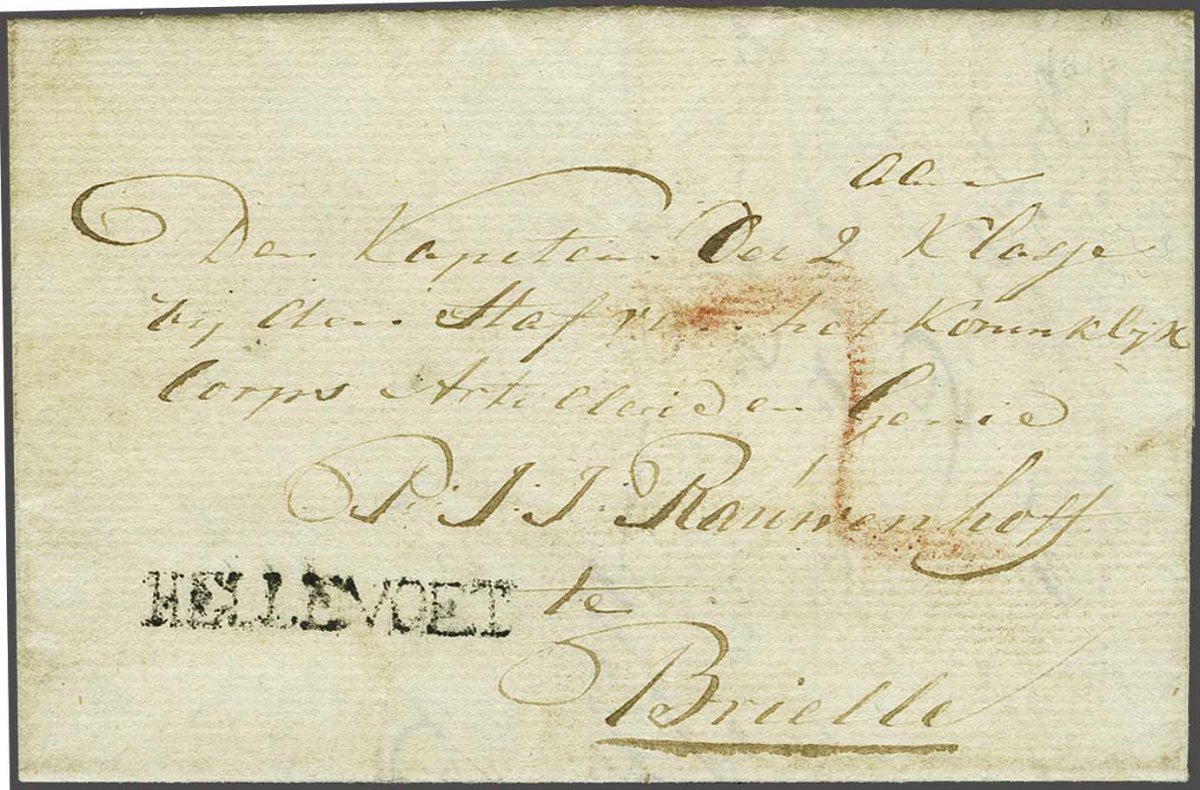 aan
Den Kapitein Der 2 Klasse
bij den Staf van het Koninklijk
Corps Artillerie en Genie
P: J: J: Rauwenhoff
te
HELLEVOET
Brielle